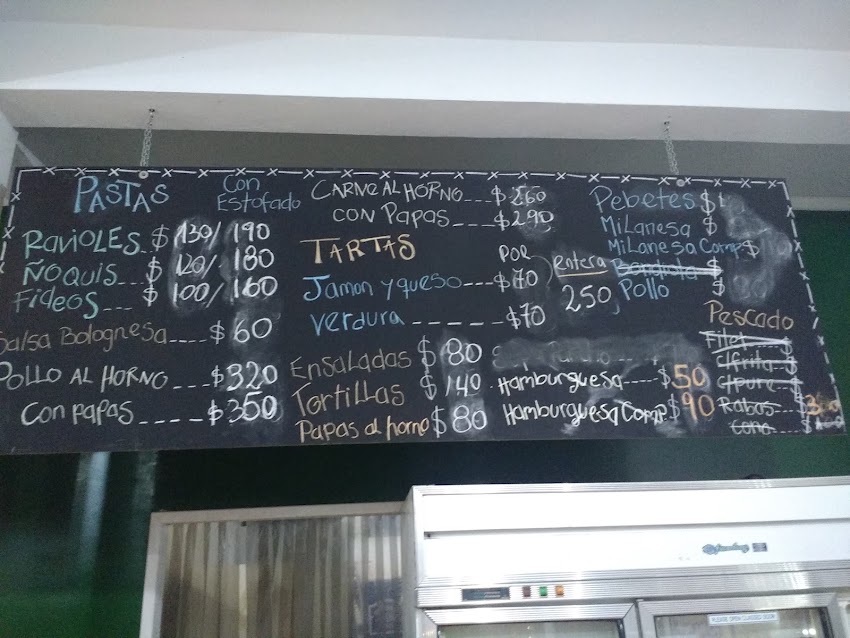 PASTAS Con Estofado
RavioLes..$ 130/190
ÑoQuis...$ 120/180
Fideos...$ 100/160
Salsa Bolognesa....$60
POLLO AL HORNO...$320
con papas....$350
CARNE AL HORNO...$260
CON Papas...$290
TARTAS POR entera
Jamon y queso...$70 250
Verdura ------$70
Ensaladas $80
Tortillas $140
Papas al horno $80
Pebetes $
MiLanesa $
MiLanesa Comp. $
Bondiola $
Pollo
Hamburguesa----$50
Hamburguesa Comp.$90
Pescado
Filet $
Rabas...$
PLEASE OPEN CLOSED DOOR